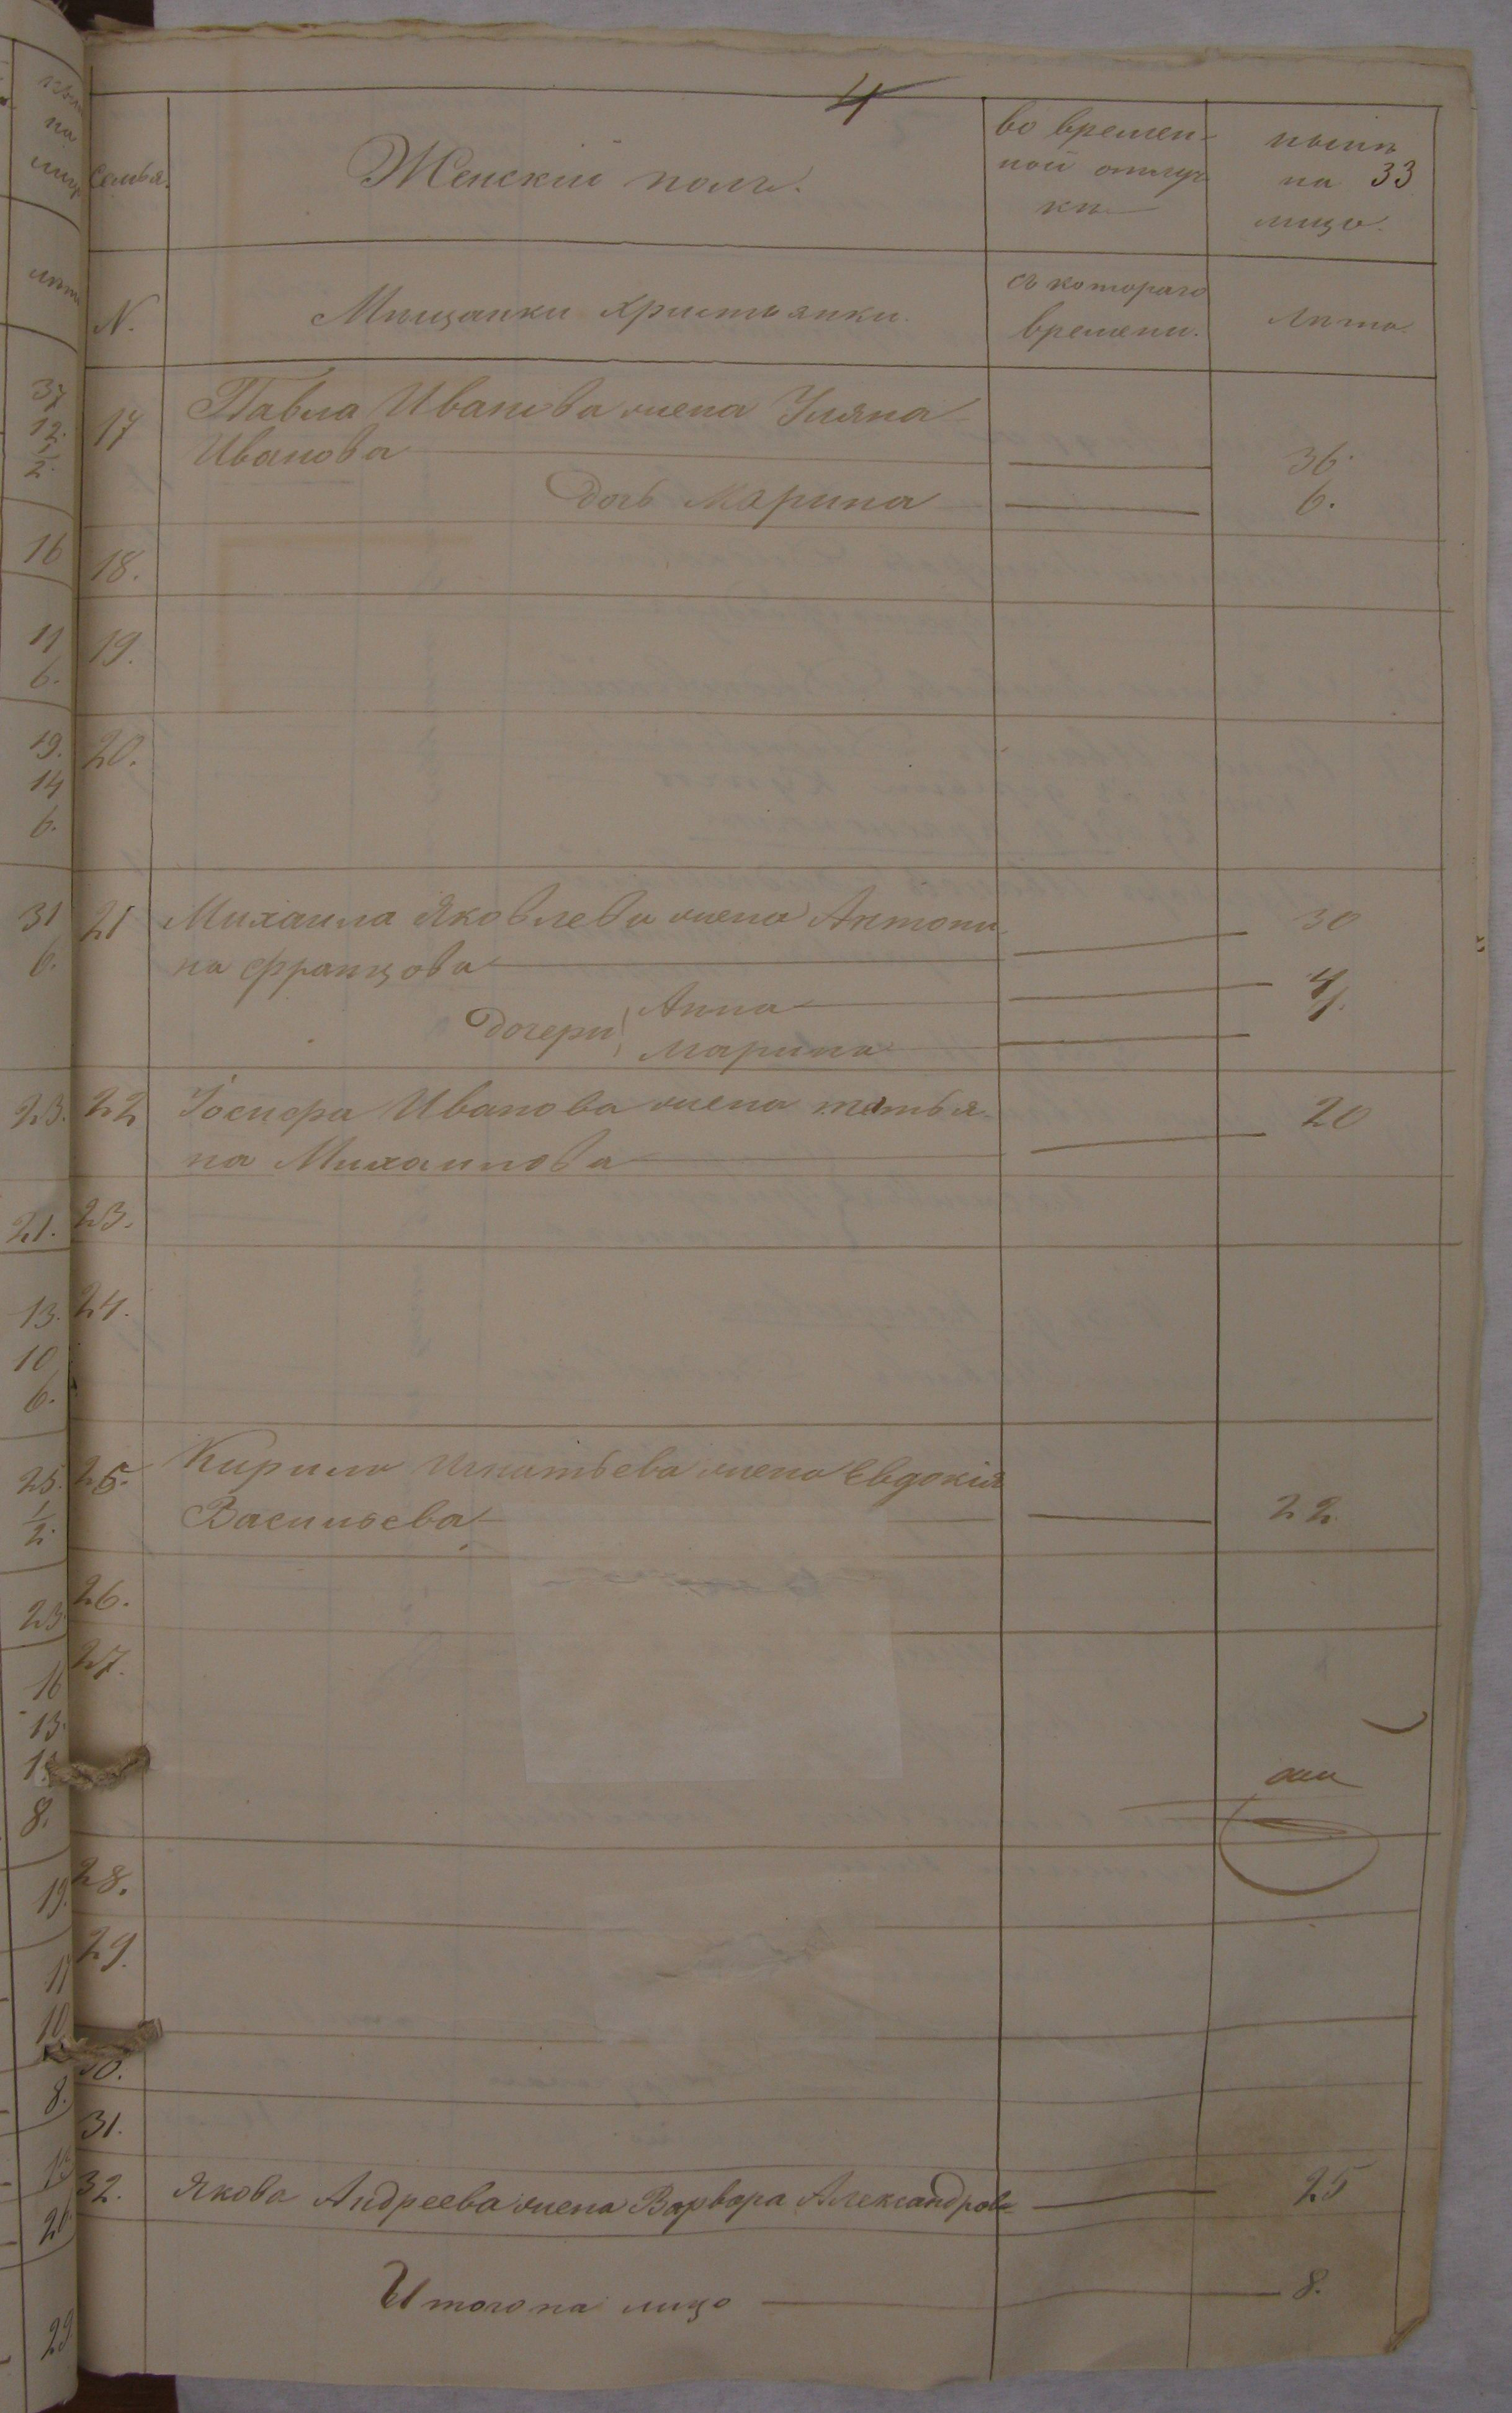 4
Семья.
Женскій полъ.
во времен-
ной отлуч-
кѣ
нынѣ
на 33
лицо.
N.
Мѣщанки христьянки.
съ котораго
времени.
Лѣта.
17 Павла Иванова жена Уляна
Иванова 36.
дочь Марина 6.
18.
19.
20.
21 Михаила Яковлева жена Антони
на Францова 30
дочери Анна 4
Марина 1.
22 Іосифа Иванова жена татья-
на Михаилова 20
23.
24.
25. Кирила Игнатьева жена Евдокія
Васильева 22.
26.
27.
28.
29.
30.
31.
32. Якова Андреева жена Варвара Александров 25
Итого на лицо 8.
37
12.
1/2.
16
11
6.
19.
14
6.
31
6.
23.
21.
13.
10
6.
25.
1/2.
23.
16
13.
8.
19.
11
10
8.